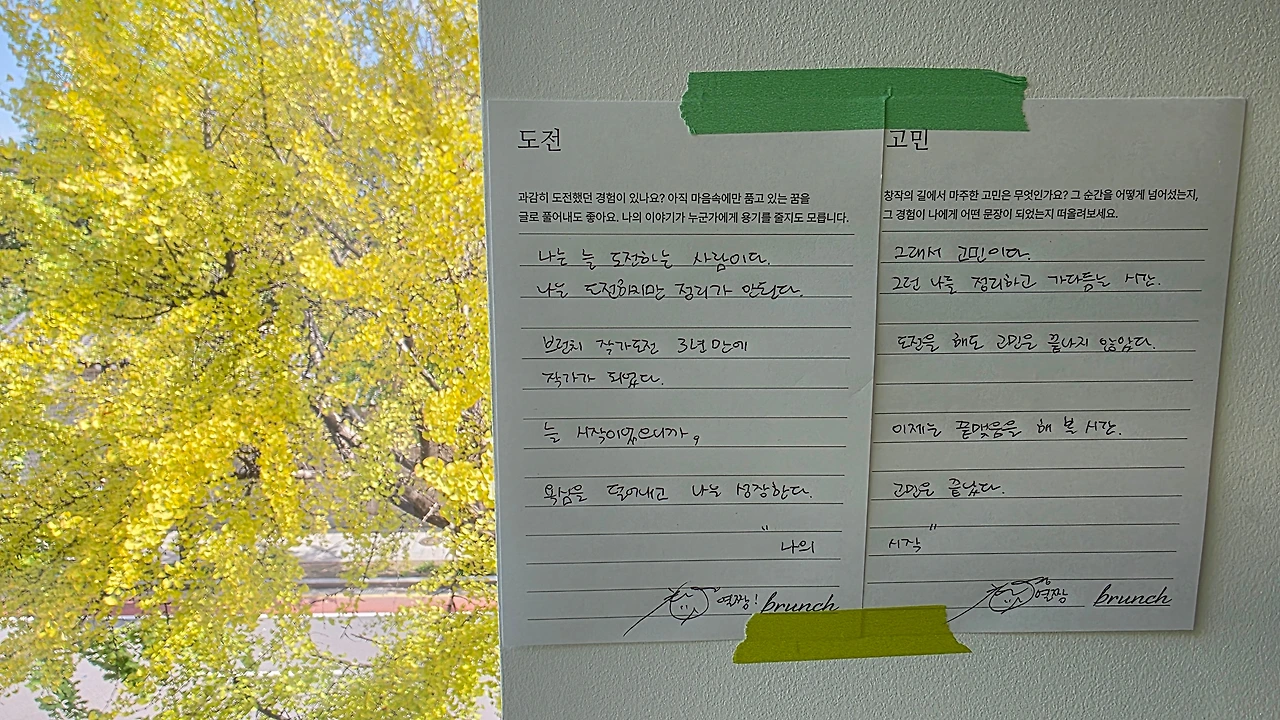 도전
과감히 도전했던 경험이 있나요? 아직 마음속에만 품고 있는 꿈을
글로 풀어내도 좋아요. 나의 이야기가 누군가에게 용기를 줄지도 모릅니다.
나는 늘 도전하는 사람이다.
나는 도전하지만 정리가 안된다.
브런치 작가도전 3년만에
작가가 되었다.
늘 시작이었으니까,
욕심을 덜어내고 나는 성장한다.
"나의
연짱! brunch
고민
창작의 길에서 마주한 고민은 무엇인가요? 그 순간을 어떻게 넘어섰는지,
그 경험이 나에게 어떤 문장이 되었는지 떠올려보세요.
그래서 고민이다.
그런 나를 정리하고 가다듬는 시간.
도전을 해도 고민은 끝나지 않았다.
이제는 끝맺음을 해 볼 시간.
고민은 끝났다.
시작"
연짱 brunch